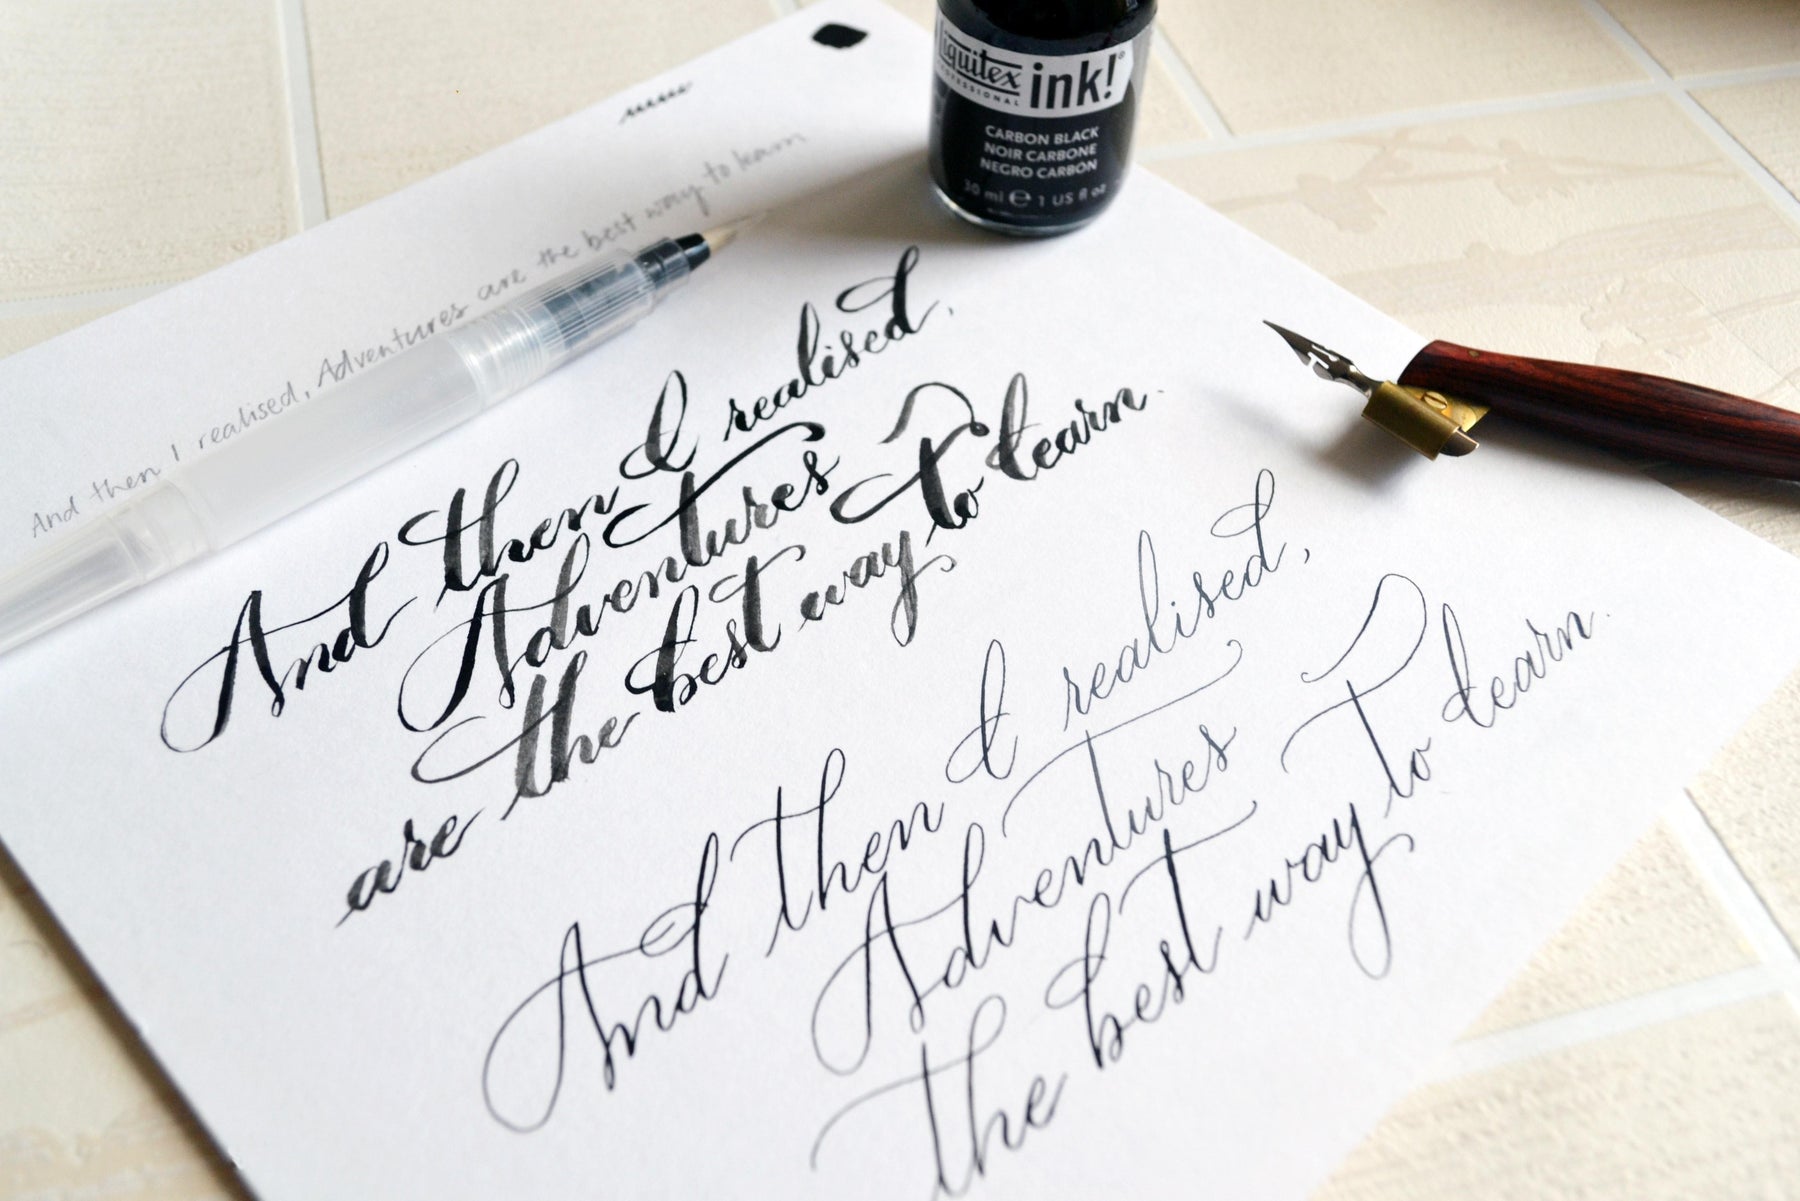 Liquitex
PROFESSIONAL
ink!®
CARBON BLACK
NOIR CARBONE
NEGRO CARBÓN
30 ml ℮ 1 US fl oz
And then I realised, Adventures are the best way to learn
And then I realised,
Adventures
are the best way to learn.
And then I realised,
Adventures
the best way to learn.